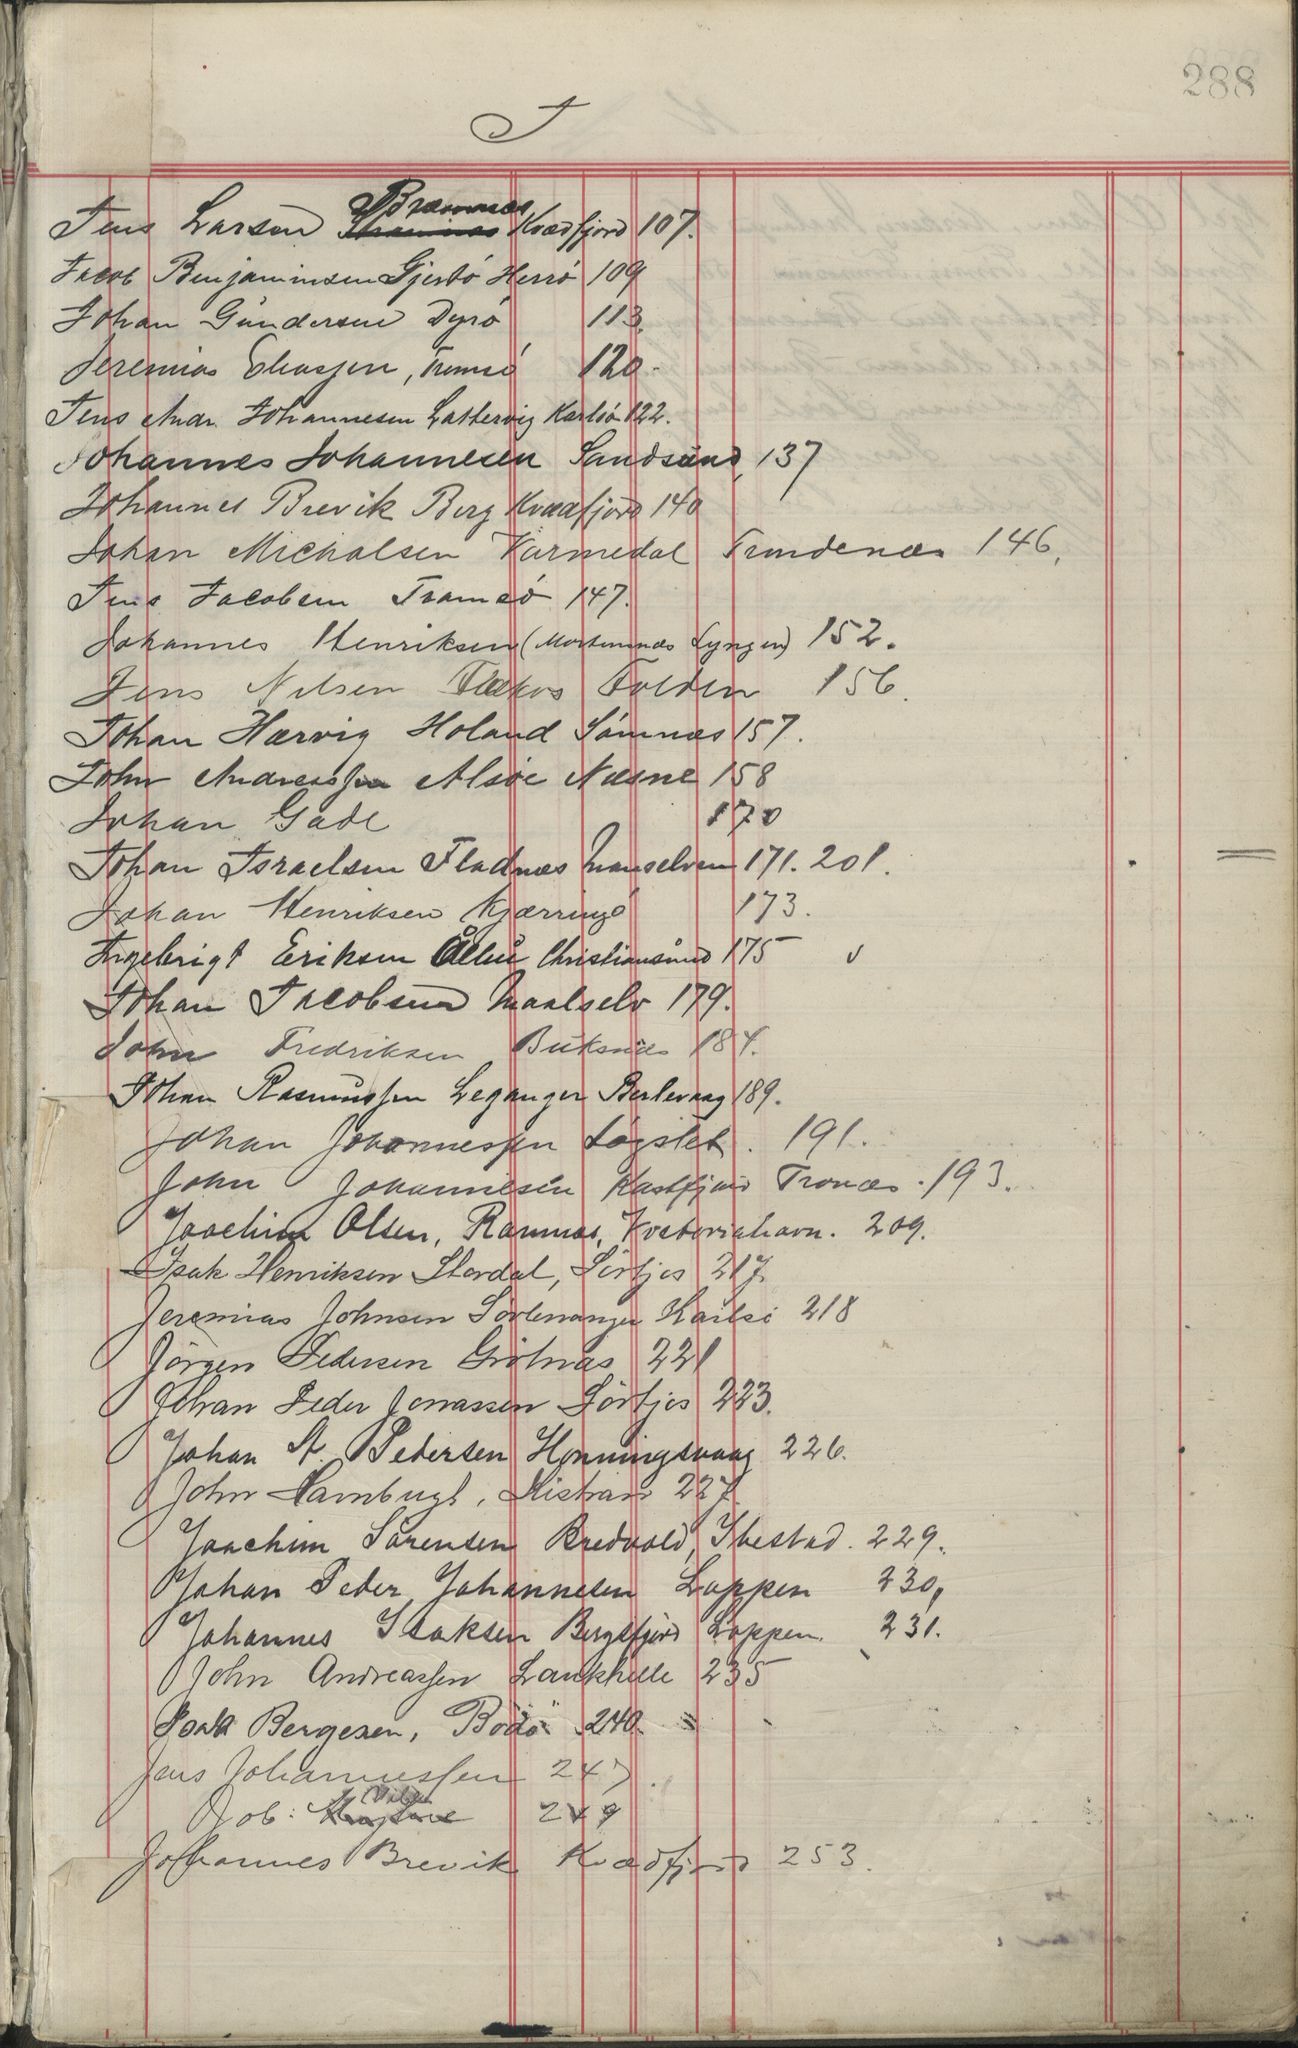 288
J
Jens Larsen Bremnes Kvædfjord 107.
Jacob Benjaminsen Gjestö Herrö 109
Johan Gundersen Dyrö 113.
Jeremias Eliassen, Tromsö 120.
Jens Andr. Johannesen Lattervig Karlsö 122.
Johannes Johannesen Sandsund, 137
Johannes Brevik Berg Kvædfjord 140
Johan Michalsen Varmedal Trondenæs 146.
Jens Jacobsen Tromsö 147.
Johannes Henriksen (Mortensnæs Lyngen) 152.
Jens Nilsen Folden 156.
Johan Hærvig Holand Sömnæs 157.
John Andreassen Alsöe Næsne 158
Johan Gade 170
Johan Israelsen Fladnæs Maaselven 171. 201.
Johan Henriksen Kjærringö 173.
Ingebrigt Eriksen Christiansund 175
Johan Jacobsen Maalselv 179.
John Fredriksen Buksnæs 184.
Johan Rasmussen Leganger Berlevaag 189.
Johan Johannessen Løgstet. 191.
John Johannesen Kastfjord Tronæs. 193.
Joachim Olsen, Ramnæs, Victoriahavn. 209.
Isak Henriksen Stordal, Sörfjor 217.
Jeremias Johnsen Sörlenangen Karlsö 218
Jörgen Pedersen Grötnæs 221
Johan Peder Jonassen Sörfjor 223.
Johan A. Pedersen Honningsvaag 226.
John Hambugt, Kistrand 227.
Joachim Sörensen Bredvold, Ibestad. 229.
Johan Peder Johannesen Loppen 230,
Johannes Isaksen Bergsfjord Loppen. 231.
John Andreassen Lankhelle 235
Isak Bergesen, Bodö 240.
Jens Johannessen 247.
Job: 249
Johannes Brevik Kvædfjord 253.